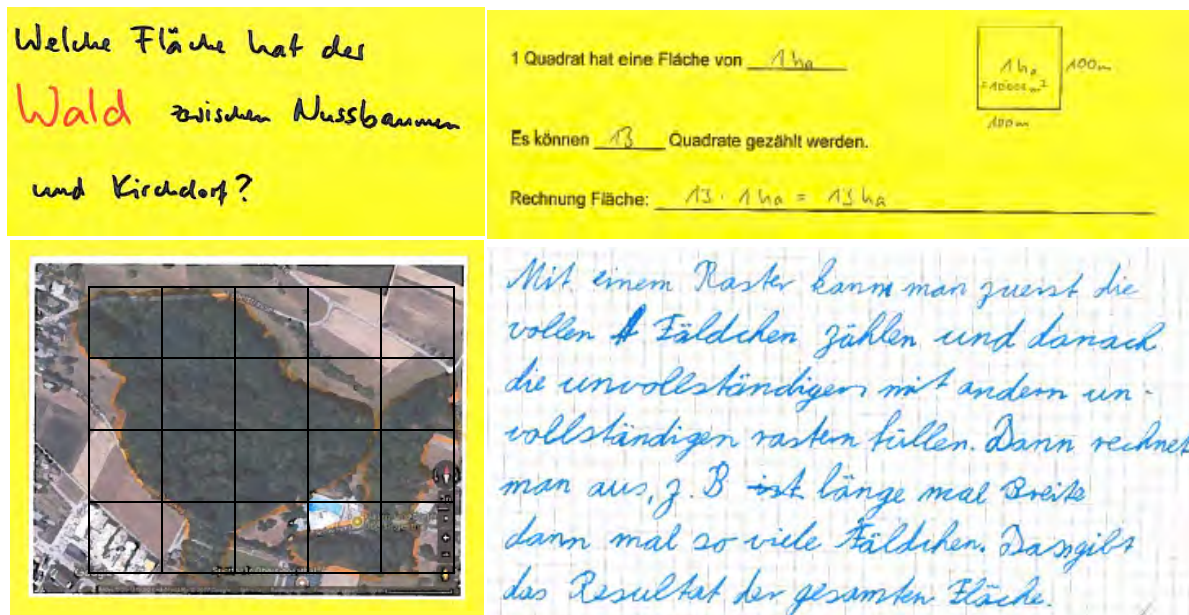 Welche Fläche hat der
Wald zwischen Nussbaumen
und Kirchdorf?
1 Quadrat hat eine Fläche von 1 ha
1 ha
= 10000 m²
100m
100m
Es können 13 Quadrate gezählt werden.
Rechnung Fläche: 13 · 1 ha = 13 ha
Mit einem Raster kann man zuerst die
vollen Fäldchen zählen und danach
die unvollständigen mit andern un-
vollständigen rastern füllen. Dann rechnet
man aus, z. B ist länge mal Breite
dann mal so viele Fäldchen. Das gibt
das Resultat der gesamten Fläche.